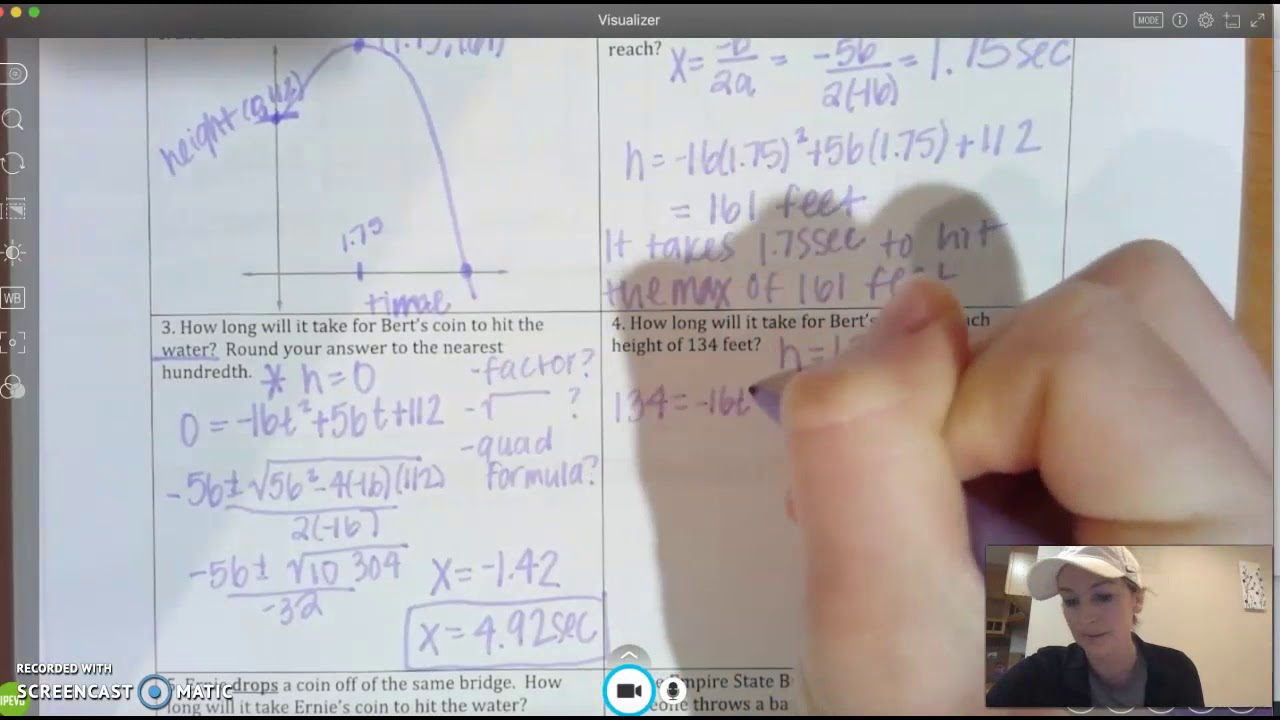 Visualizer
MODE
height
1.75
time
reach? x = -b/2a = -56/2(-16) = 1.75 sec
h = -16(1.75)² + 56(1.75) + 112
= 161 feet
It takes 1.75 sec to hit
the max of 161
3. How long will it take for Bert's coin to hit the
water? Round your answer to the nearest
hundredth. * h = 0
- factor?
0 = -16t² + 56t + 112
- √ ?
- quad
formula?
-56 ± √56² - 4(-16)(112)
2(-16)
-56 ± √10 304
-32
x = -1.42
x = 4.92 sec
4. How long will it take for Bert's
height of 134 feet? h = 1
134 = -16t
drops a coin off of the same bridge. How
long will it take Ernie's coin to hit the water?
Empire State B
throws a ba
WB
RECORDED WITH
SCREENCAST MATIC